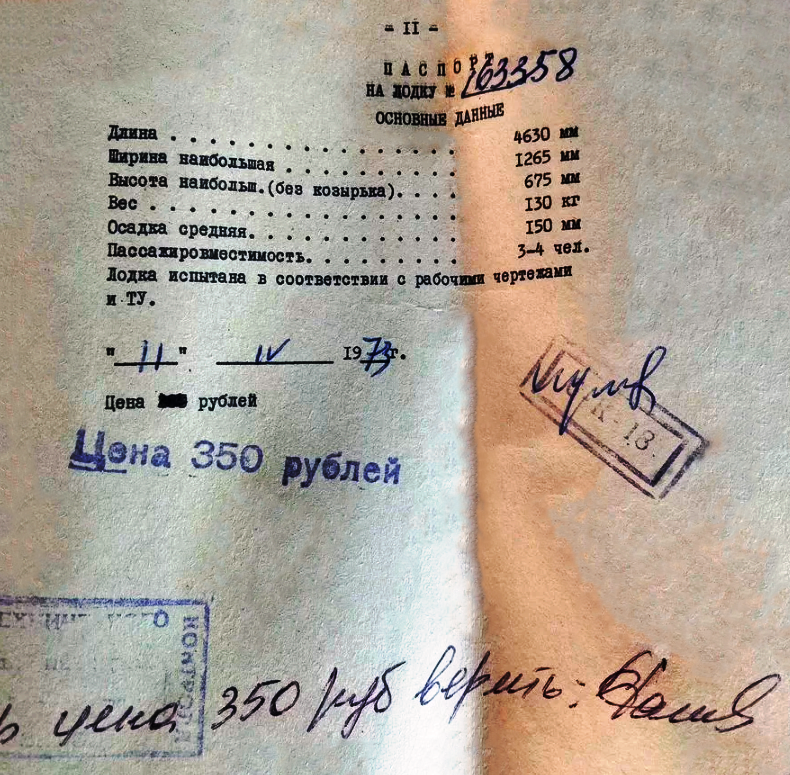 - II -
ПАСПОРТ
НА ЛОДКУ № 163358
ОСНОВНЫЕ ДАННЫЕ
Длина . . . . . . . . . . . . . . . 4630 мм
Ширина наибольшая . . . . . . . . . I265 мм
Высота наибольш.(без козырька). . . . 675 мм
Вес . . . . . . . . . . . . . . . . I30 кг
Осадка средняя. . . . . . . . . . . I50 мм
Пассажировместимость. . . . . . . . 3-4 чел.
Лодка испытана в соответствии с рабочими чертежами
и ТУ.
"11" IV 1973г.
Цена рублей
К-13.
Цена 350 рублей
КОНТРОЛЯ
цена 350 руб верить: